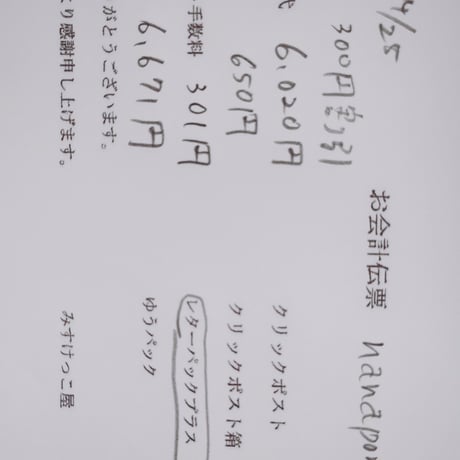 お会計伝票 nanapo
4/25
300円割引
クリックポスト
代 6,020円
クリックポスト箱
650円
レターパックプラス
手数料 301円
ゆうパック
6,671円
がとうございます。
り感謝申し上げます。
みすけっこ屋